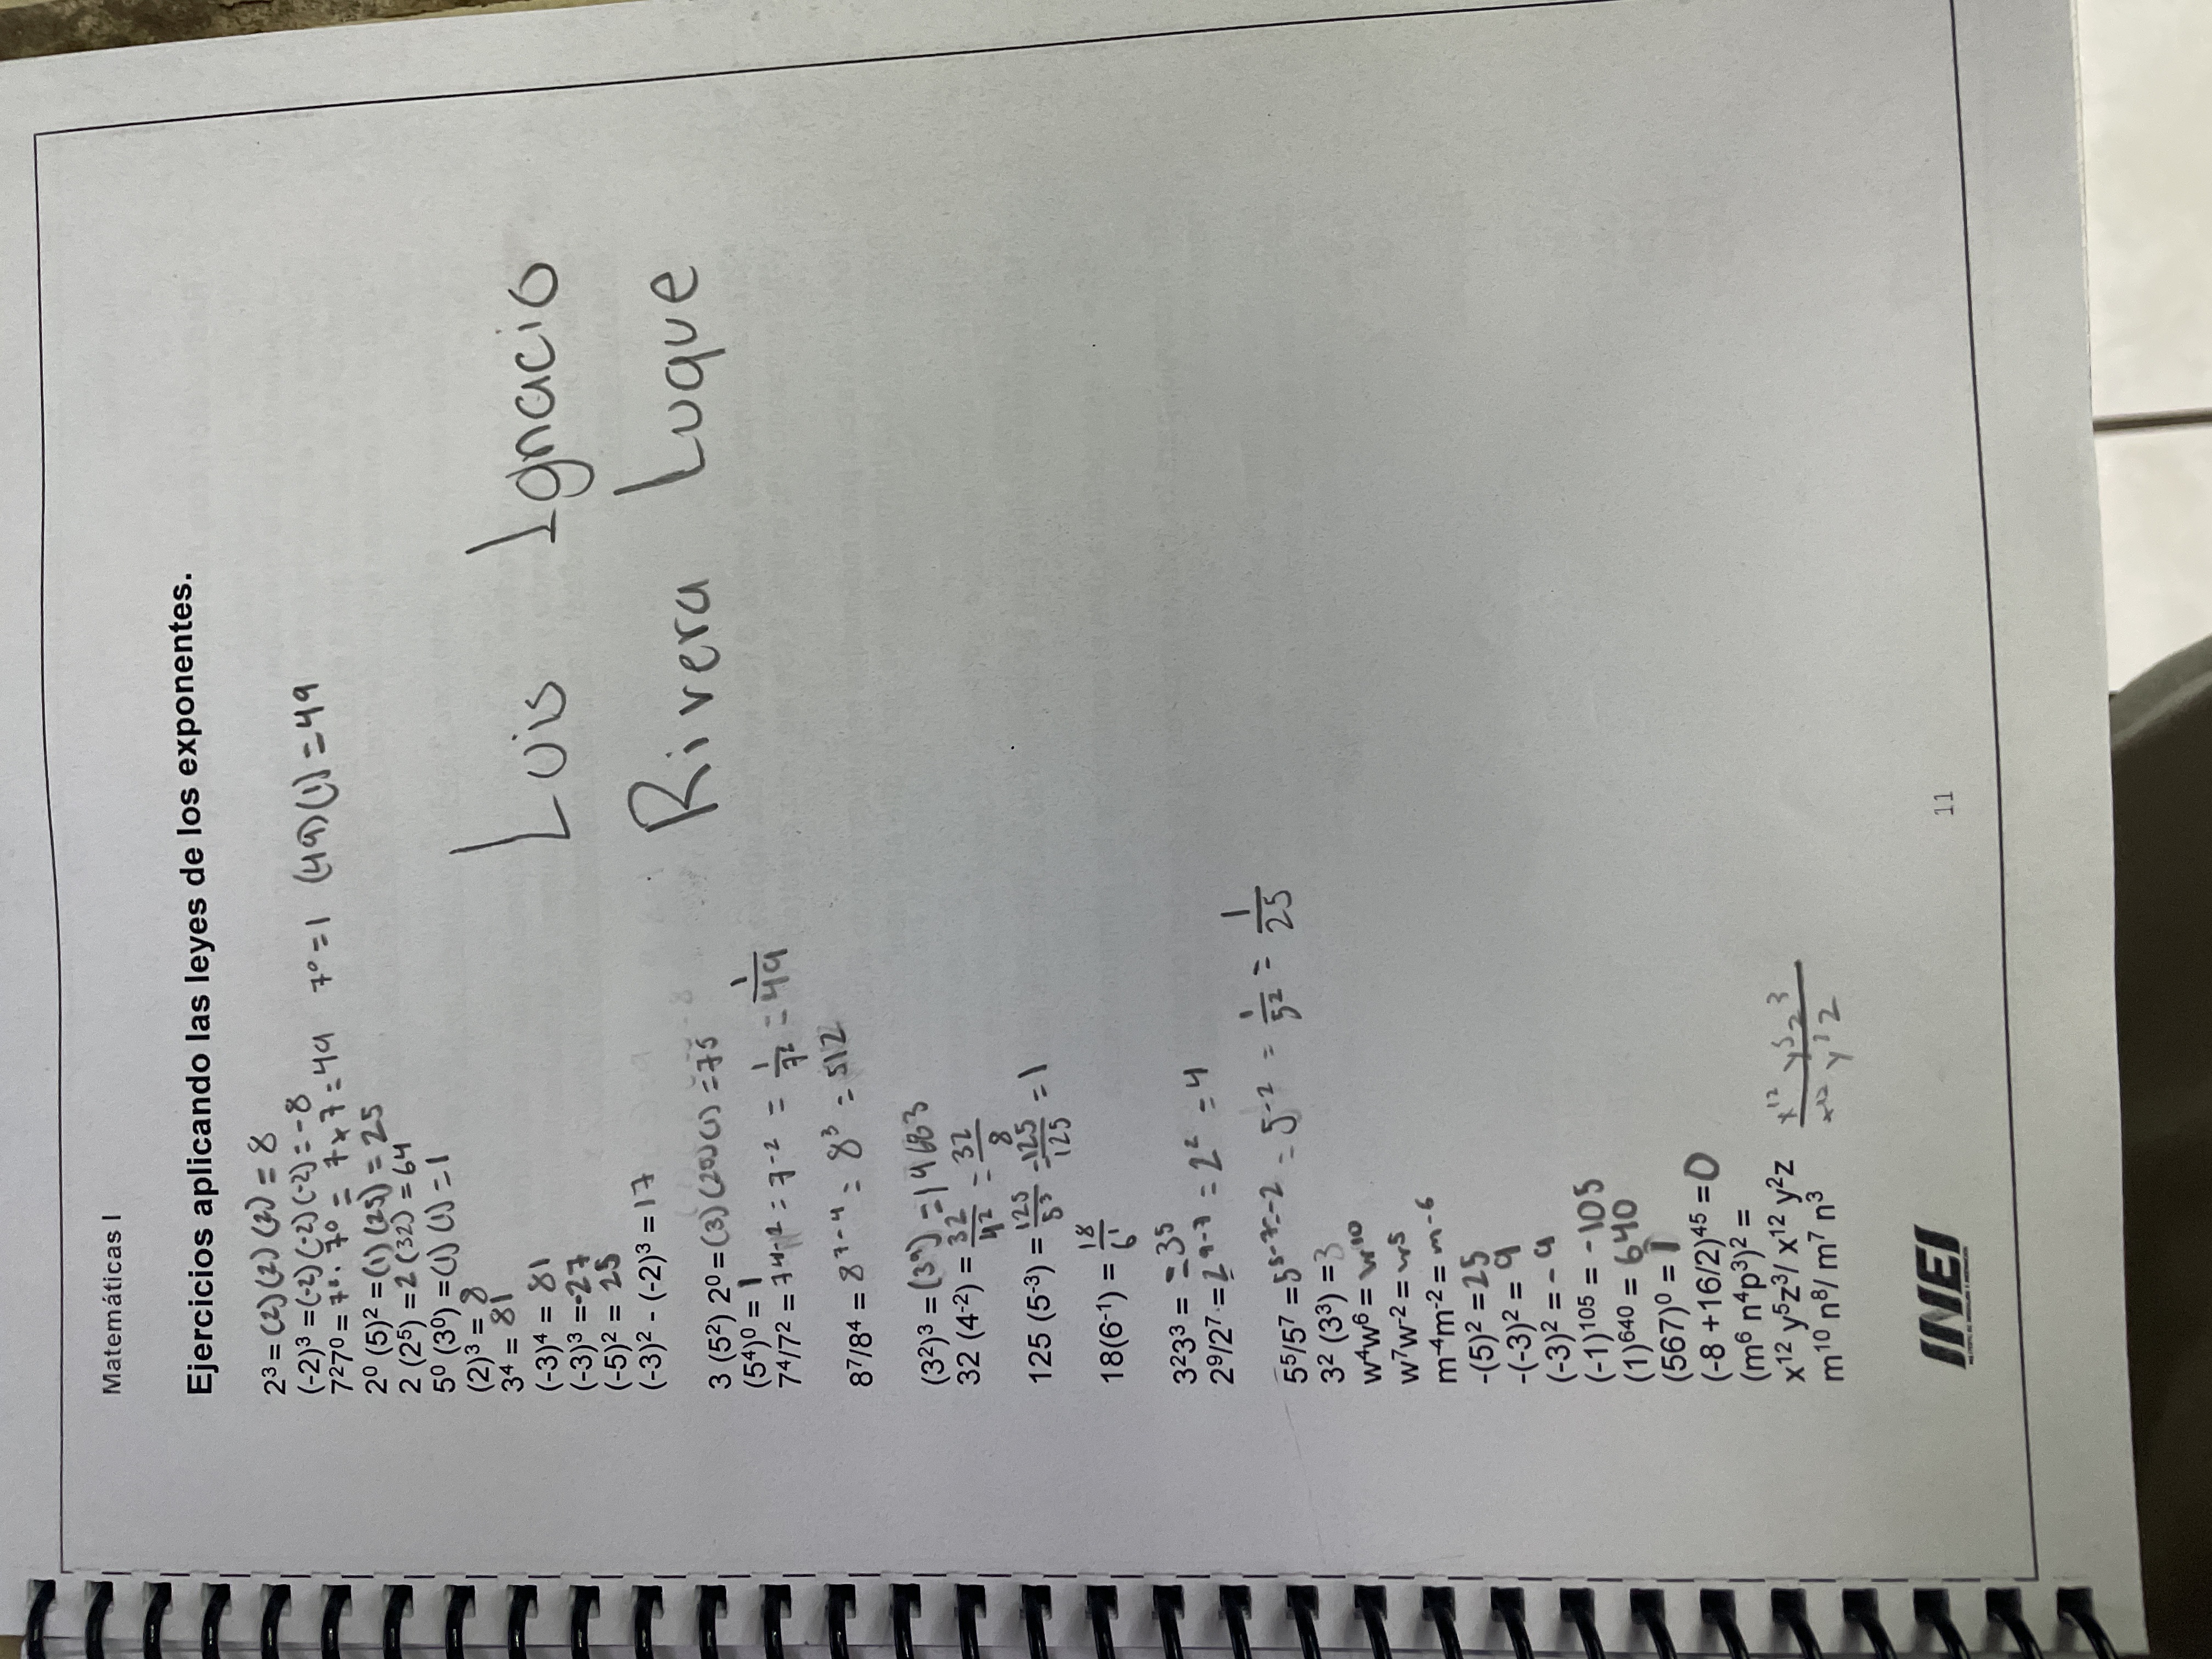 Matemáticas I
Ejercicios aplicando las leyes de los exponentes.
2³ = (2)(2)(2) = 8
(-2)³ = (-2)(-2)(-2) = -8
7²7⁰ = 7². 7⁰ = 7x7 = 49 7⁰ = 1 (49)(1) = 49
2⁰ (5)² = (1)(25) = 25
2 (2⁵) = 2 (32) = 64
5⁰ (3⁰) = (1)(1) = 1
(2)³ = 8
3⁴ = 81
(-3)⁴ = 81
(-3)³ = -27
(-5)² = 25
(-3)² - (-2)³ = 17
Luis Ignacio
Rivera Luque
3 (5²) 2⁰ = (3)(25)(1) = 75
(5⁴)⁰ = 1
7⁴/7² = 7⁴⁻² = 7⁻² = 1/7² = 1/49
8⁷/8⁴ = 8⁷⁻⁴ = 8³ = 512
(3²)³ = (3⁹) =
32 (4⁻²) = 32/4² = 32/8
125 (5⁻³) = 125/5³ = 125/125 = 1
18(6⁻¹) = 18/6¹
3²3³ = = 3⁵
2⁹/2⁷ = 2⁹⁻⁷ = 2² = 4
5⁵/5⁷ = 5⁵⁻⁷=⁻² = 5⁻² = 1/5² = 1/25
3² (3³) = 3
w⁴w⁶ = w¹⁰
w⁷w⁻² = w⁵
m⁻⁴m⁻² = m⁻⁶
-(5)² = 25
-(-3)² = 9
(-3)² = -9
(-1)¹⁰⁵ = -105
(1)⁶⁴⁰ = 640
(567)⁰ = 1
(-8 +16/2)⁴⁵ = 0
(m⁶ n⁴p³)² =
x¹² y⁵z³/ x¹² y²z x¹² y⁵z³ / x¹² y² z
m¹⁰ n⁸/ m⁷ n³
INEI
11